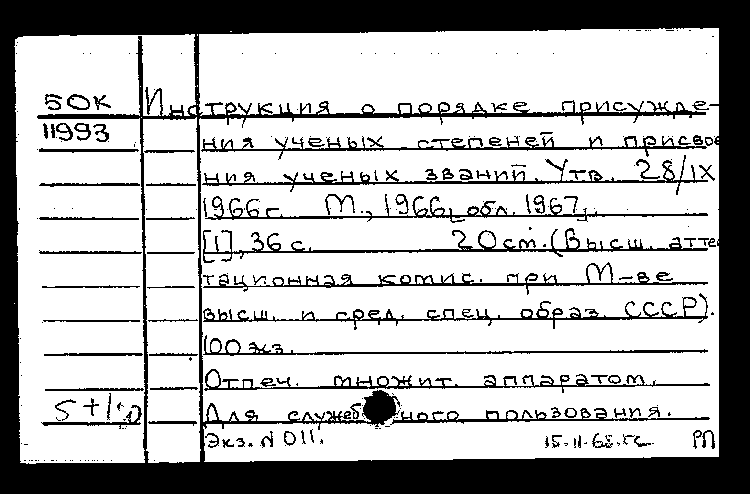 БОК Инструкция о порядке присужде-
11993 ния ученых степеней и присвое
ния ученых званий. Утв. 28/IX
1966 г. М., 1966, [обл. 1967].
[1], 36 с. 20 см. (Высш. атте
тационная комис. при М-ве
высш. и сред. спец. образ. СССР).
100 экз.
Отпеч. множит. аппаратом.
Для служебного пользования.
Экз. N 011. 15-II-68 РП